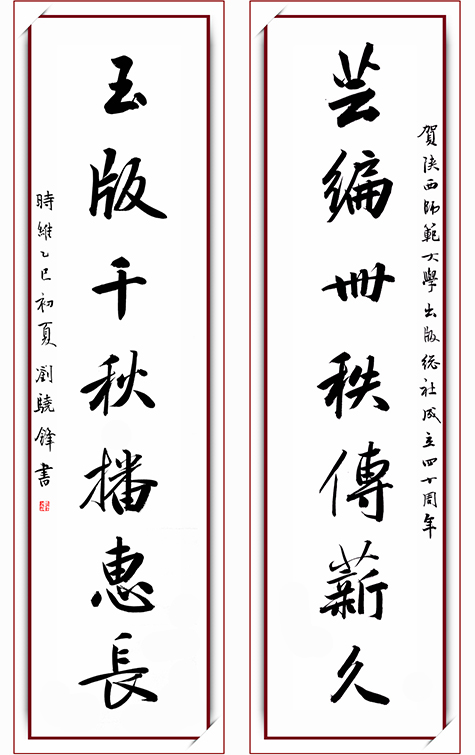 賀陝西師範大學出版総社成立四十周年
芸編卌秩傳薪久
玉版千秋播惠長
時維乙巳初夏 劉驍鋒書